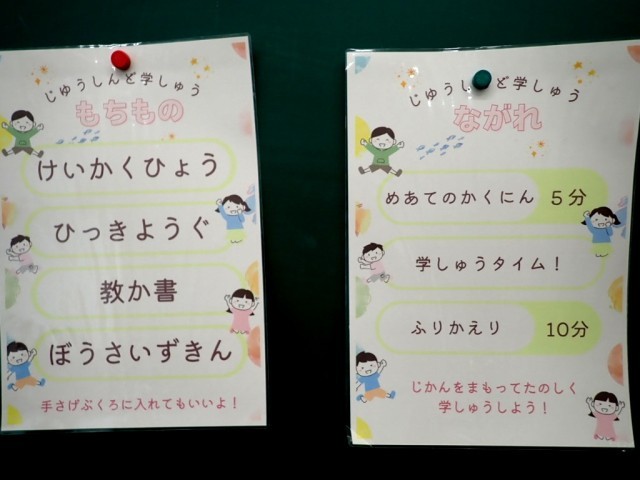 じゆうしんど学しゅう
もちもの
けいかくひょう
ひっきようぐ
教か書
ぼうさいずきん
手さげぶくろに入れてもいいよ!
じゆうし ど学しゅう
ながれ
めあてのかくにん 5分
学しゅうタイム!
ふりかえり 10分
じかんをまもってたのしく
学しゅうしよう!